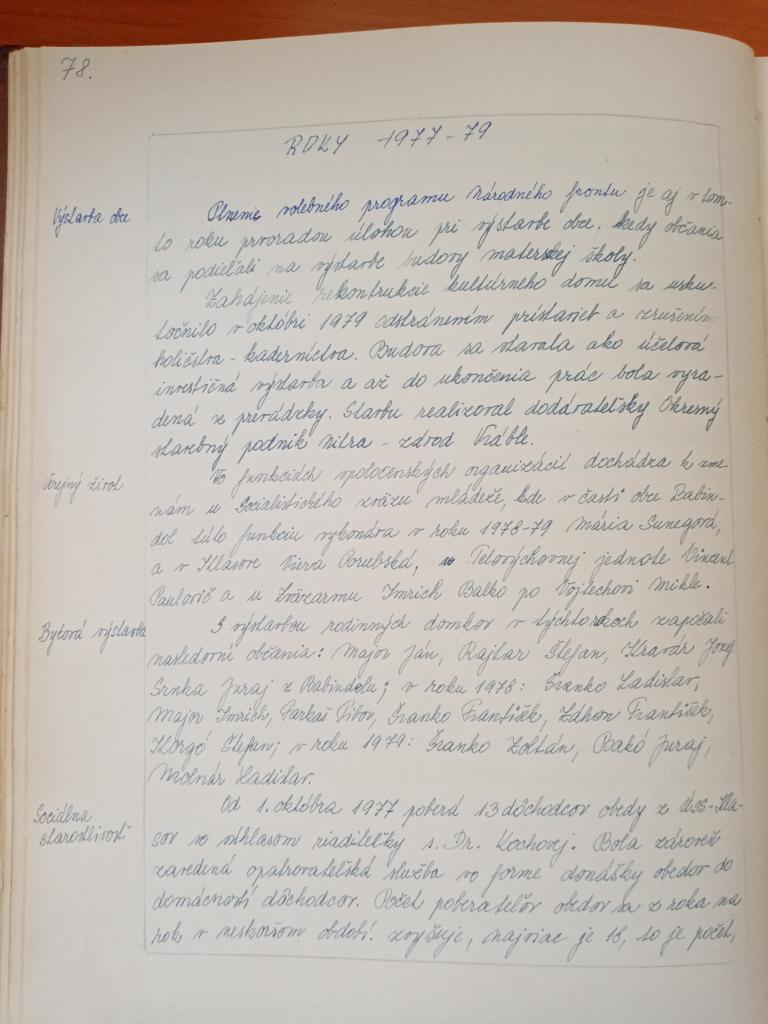 78.
ROKY 1977-79
Výstavba obce
Plnenie volebného programu Národného frontu je aj v tom-
to roku prvoradou úlohou pri výstavbe obce, kedy občania
sa podieľali na výstavbe budovy materskej školy.
Zahájenie rekontrukcie kultúrneho domu sa usku-
točnilo v októbri 1979 odstránením prístavieb a zrušením
holičstva - kaderníctva. Budova sa stavala ako účelová
investičná výstavba a až do ukončenia prác bola vyra-
dená z prevádzky. Stavbu realizoval dodávateľsky Okresný
stavebný podnik Nitra - závod Vráble.
Verejný život
Vo funkciách spoločenských organizácií dochádza k zme-
nám u Socialistického zväzu mládeže, kde v časti obce Babin-
dol túto funkciu vykonáva v roku 1978-79 Mária Sunegová,
a v Klasove Viera Porubská, Telovýchovnej jednote Vincent
Paulovič a u Zväzarmu Imrich Balko po Vojtechovi Mikle.
Bytová výstavba
S výstavbou rodinných domkov v týchto rokoch započali
nasledovní občania: Major Ján, Rajtar Štefan, Kravár Jozef
Srnka Juraj z Babindolu; v roku 1978: Franko Ladislav,
Major Imrich, Farkaš Tibor, Franko František, Záhon František,
Korgó Štefan; v roku 1979: Franko Zoltán, Bakó Juraj,
Molnár Ladislav.
Sociálna
starostlivosť
Od 1. októbra 1977 poberá 13 dôchodcov obedy z ÚSS-Kla-
sov so súhlasom riaditeľky s. Dr. Kochovej. Bola zároveň
zavedená opatrovateľská služba vo forme donášky obedov do
domácností dôchodcov. Počet poberateľov obedov sa z roka na
rok v neskoršom období zvyšuje, najviac je 18, to je počet,